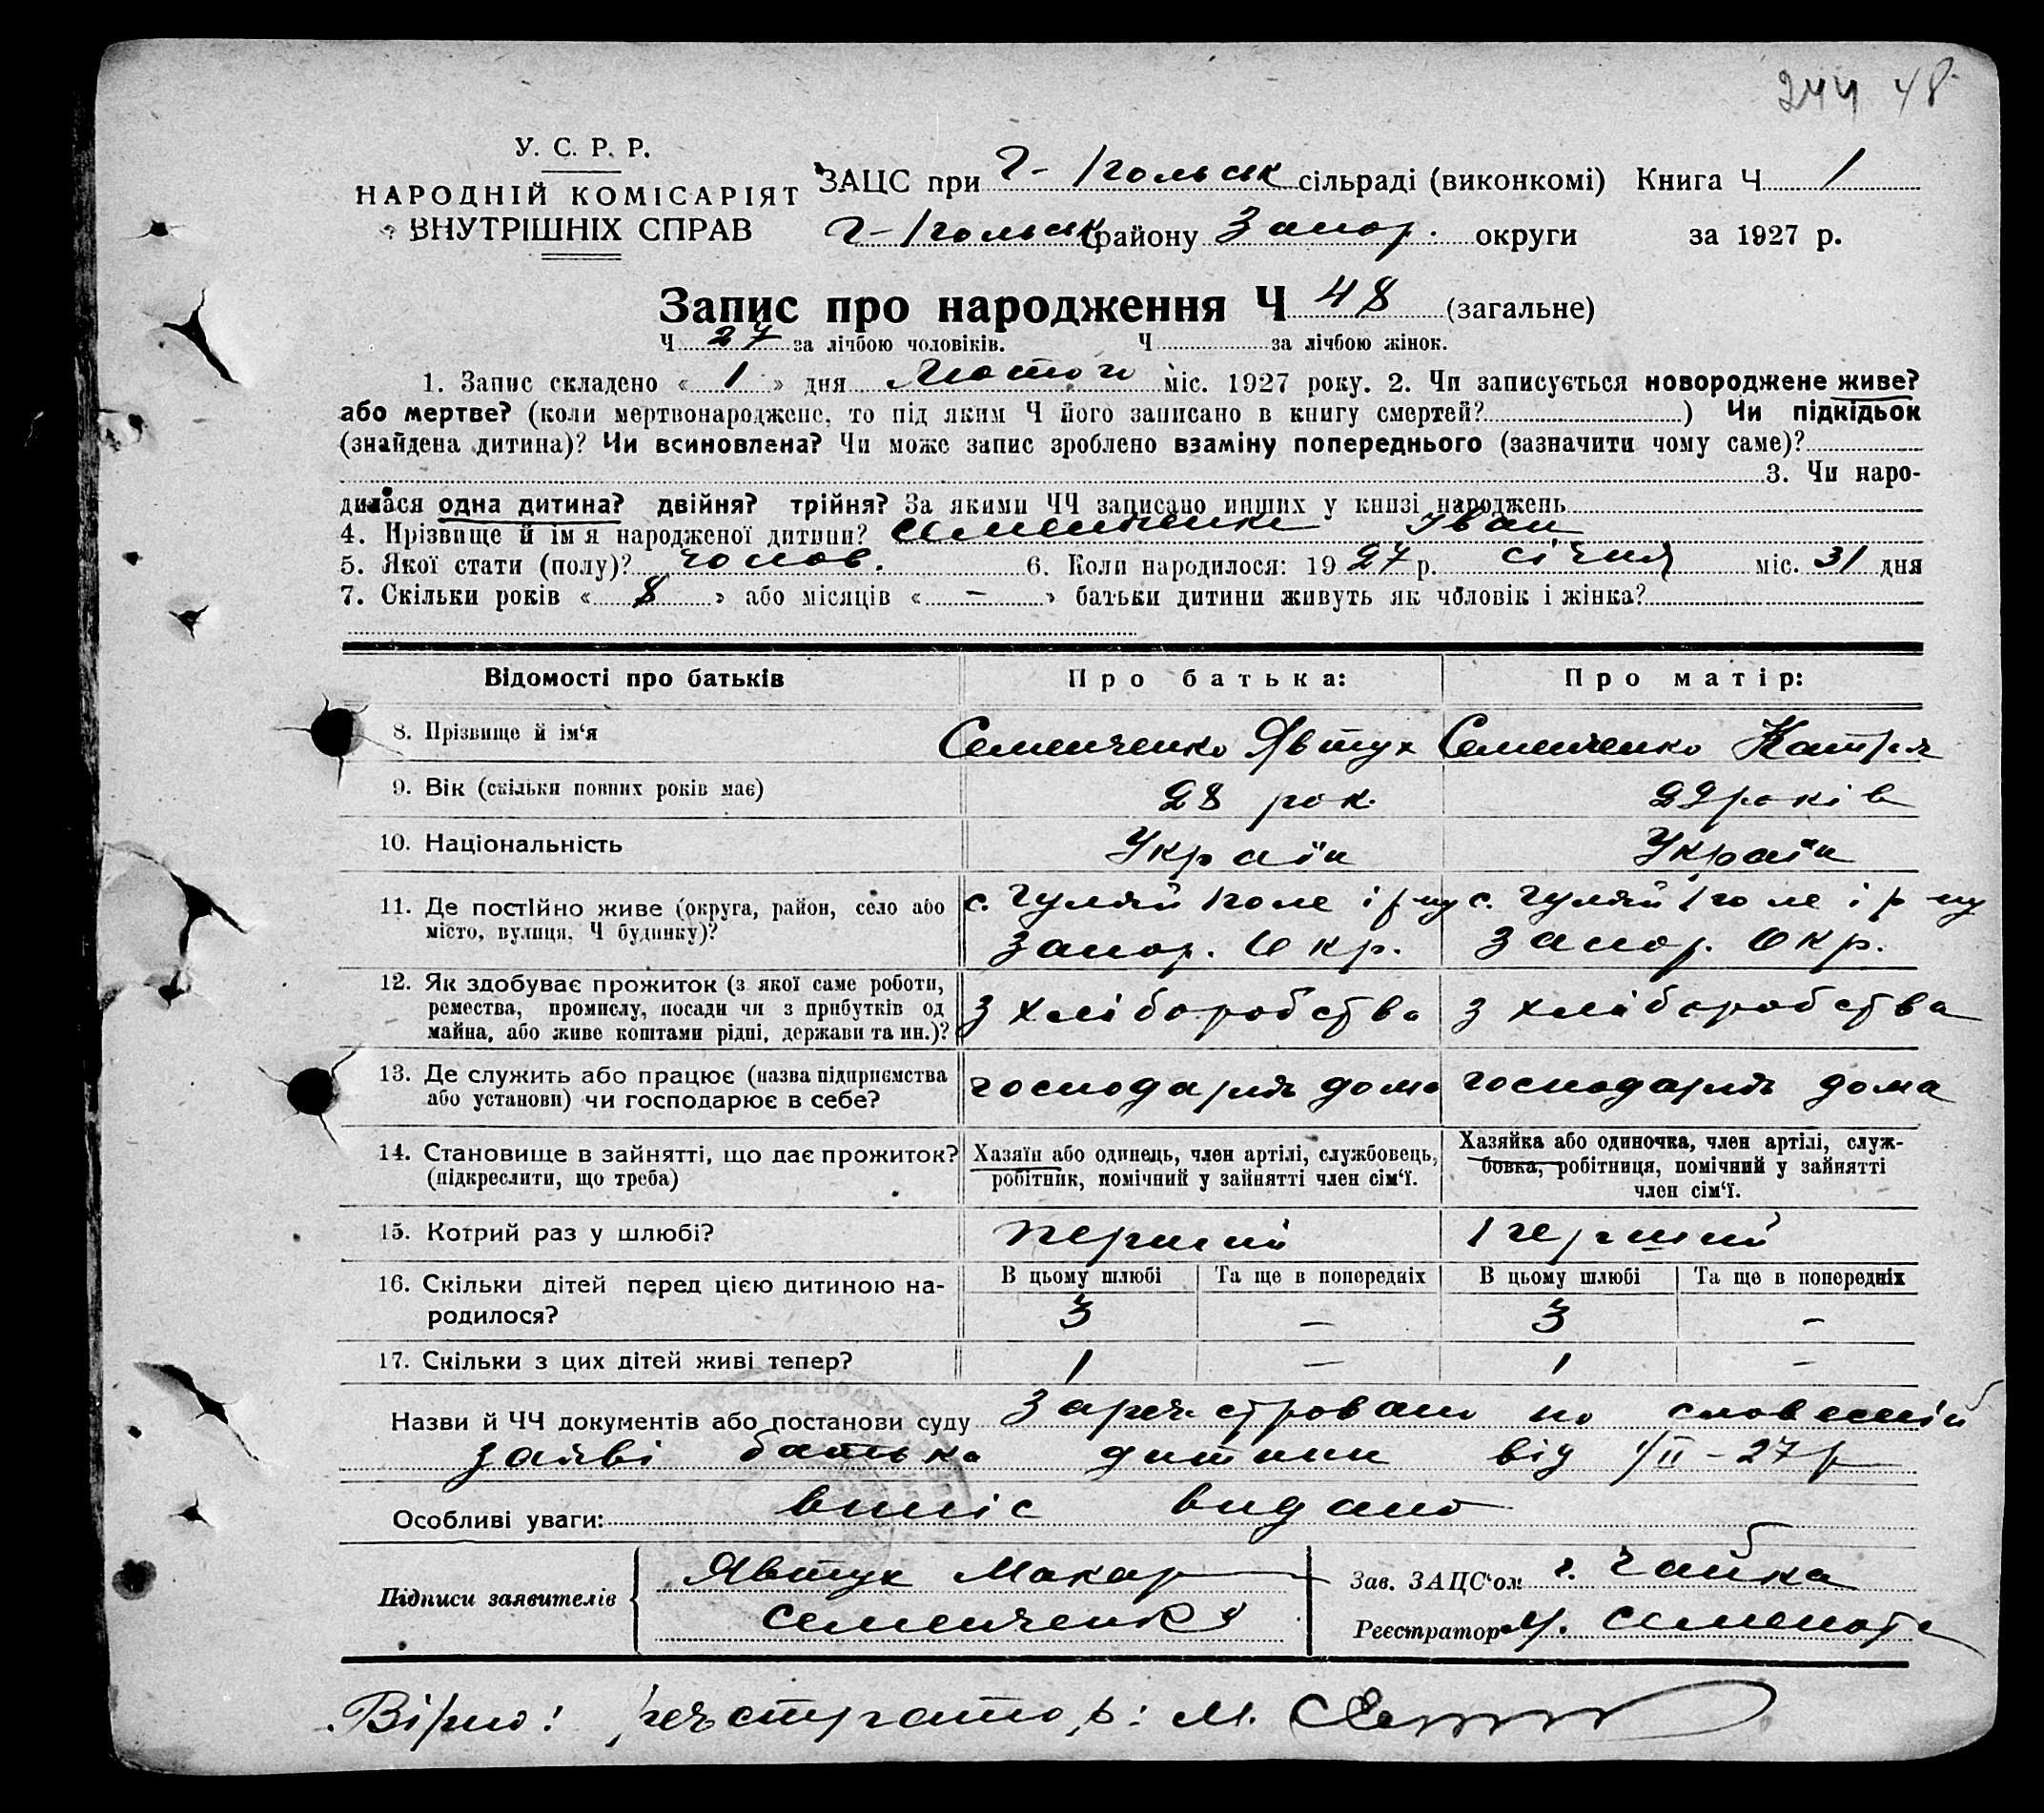 244 48
У. С. Р. Р.
НАРОДНІЙ КОМІСАРІЯТ
ВНУТРІШНІХ СПРАВ
ЗАЦС при Г-Польськ сільраді (виконкомі) Книга Ч 1
Г-Польськ району Запор. округи за 1927 р.
Запис про народження Ч 48 (загальне)
Ч 27 за лічбою чоловіків. Ч за лічбою жінок.
1. Запис складено « 1 » дня Лютого міс. 1927 року. 2. Чи записується новороджене живе?
або мертве? (коли мертвонароджене, то під яким Ч його записано в книгу смертей? ) Чи підкідьок
(знайдена дитина)? Чи всиновлена? Чи може запис зроблено взаміну попереднього (зазначити чому саме)?
3. Чи наро-
дилася одна дитина? двійня? трійня? За якими ЧЧ записано инших у книзі народжень
4. Прізвище й ім'я народженої дитини? Семенченко Іван
5. Якої стати (полу)? чолов. 6. Коли народилося: 1927 р. січня міс. 31 дня
7. Скільки років « 8 » або місяців « – » батьки дитини живуть як чоловік і жінка?
Відомості про батьків Про батька: Про матір:
8. Прізвище й ім'я Семенченко Явтух Семенченко Катря
9. Вік (скільки повних років має) 28 рок. 29 років
10. Національність Україн Україн
11. Де постійно живе (округа, район, село або с. Гуляй Поле і р-ну с. Гуляй Поле і р-ну
місто, вулиця, Ч будинку)? Запор. Окр. Запор. Окр.
12. Як здобуває прожиток (з якої саме роботи,
ремества, промислу, посади чи з прибутків од з хліборобства з хліборобства
майна, або живе коштами рідні, держави та ин.)?
13. Де служить або працює (назва підприємства господарить дома господарить дома
або установи) чи господарює в себе?
14. Становище в зайнятті, що дає прожиток? Хазяїн або одинець, член артілі, службовець, Хазяйка або одиночка, член артілі, служ-
(підкреслити, що треба) робітник, помічний у зайнятті член сім'ї. бовка, робітниця, помічний у зайнятті
член сім'ї.
15. Котрий раз у шлюбі? перший перший
16. Скільки дітей перед цією дитиною на- В цьому шлюбі Та ще в попередніх В цьому шлюбі Та ще в попередніх
родилося? 3 – 3 –
17. Скільки з цих дітей живі тепер? 1 – 1 –
Назви й ЧЧ документів або постанови суду Зареєстровано по словесній
заяві батька дитини від 1/II – 27 р
Особливі уваги: випис видано
Підписи заявителів Явтух Макар Зав. ЗАЦС'ом г. Чайка
Семенченко Реєстратор М.
Вірно! реєстратор: М.